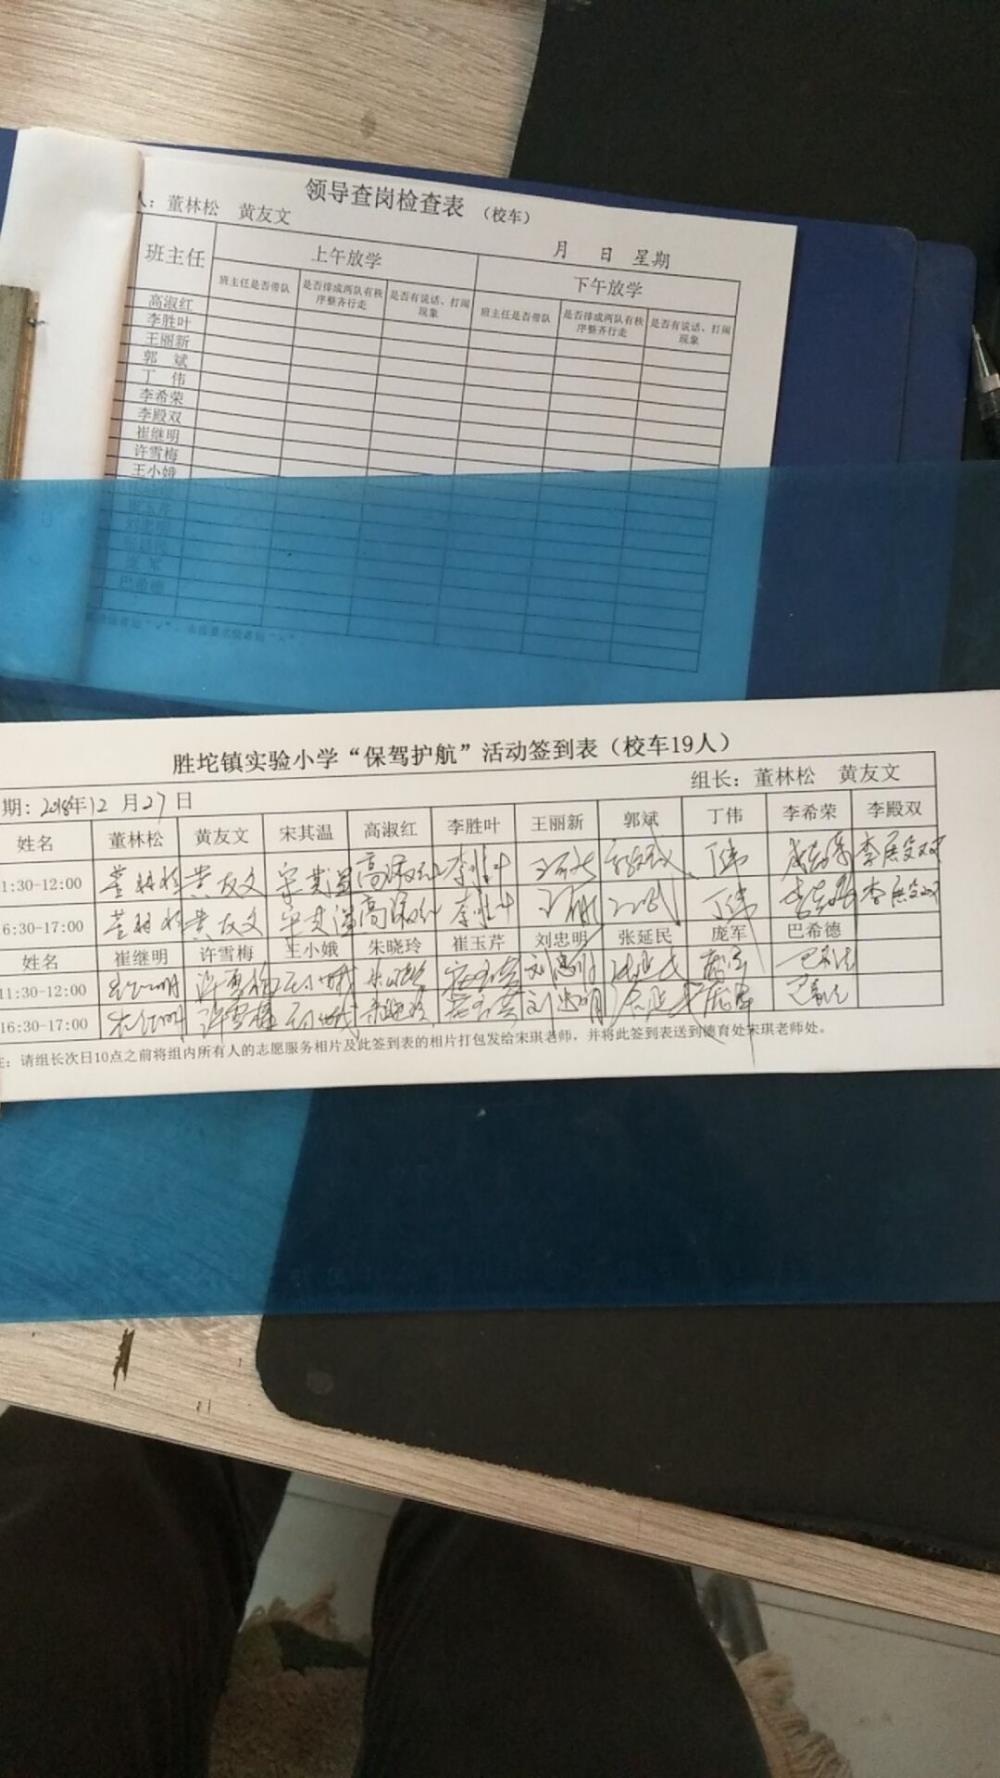 领导查岗检查表 （校车）
人：董林松 黄友文
月 日 星期
班主任 上午放学 下午放学
班主任是否带队 是否排成两队有秩序整齐行走 是否有说话、打闹现象 班主任是否带队 是否排成两队有秩序整齐行走 是否有说话、打闹现象
高淑红
李胜叶
王丽新
郭 斌
丁 伟
李希荣
李殿双
崔继明
许雪梅
王小娥
崔玉芹
刘忠明
张延民
庞 军
巴希德
胜坨镇实验小学“保驾护航”活动签到表（校车19人）
期：2018年12 月27日 组长：董林松 黄友文
姓名 董林松 黄友文 宋其温 高淑红 李胜叶 王丽新 郭斌 丁伟 李希荣 李殿双
1:30-12:00 董林松 黄友文 宋其温 高淑红 李胜叶 丁伟 李殿双
6:30-17:00 董林松 黄友文 宋其温 高淑红 李胜叶 王丽新 丁伟 李殿双
姓名 崔继明 许雪梅 王小娥 朱晓玲 崔玉芹 刘忠明 张延民 庞军 巴希德
11:30-12:00 崔继明 许雪梅 王小娥 朱晓玲 崔玉芹 刘忠明 张延民 庞军 巴希德
16:30-17:00 崔继明 许雪梅 王小娥 朱晓玲 崔玉芹 刘忠明 张延民 庞军 巴希德
注：请组长次日10点之前将组内所有人的志愿服务相片及此签到表的相片打包发给宋琪老师，并将此签到表送到德育处宋琪老师处。